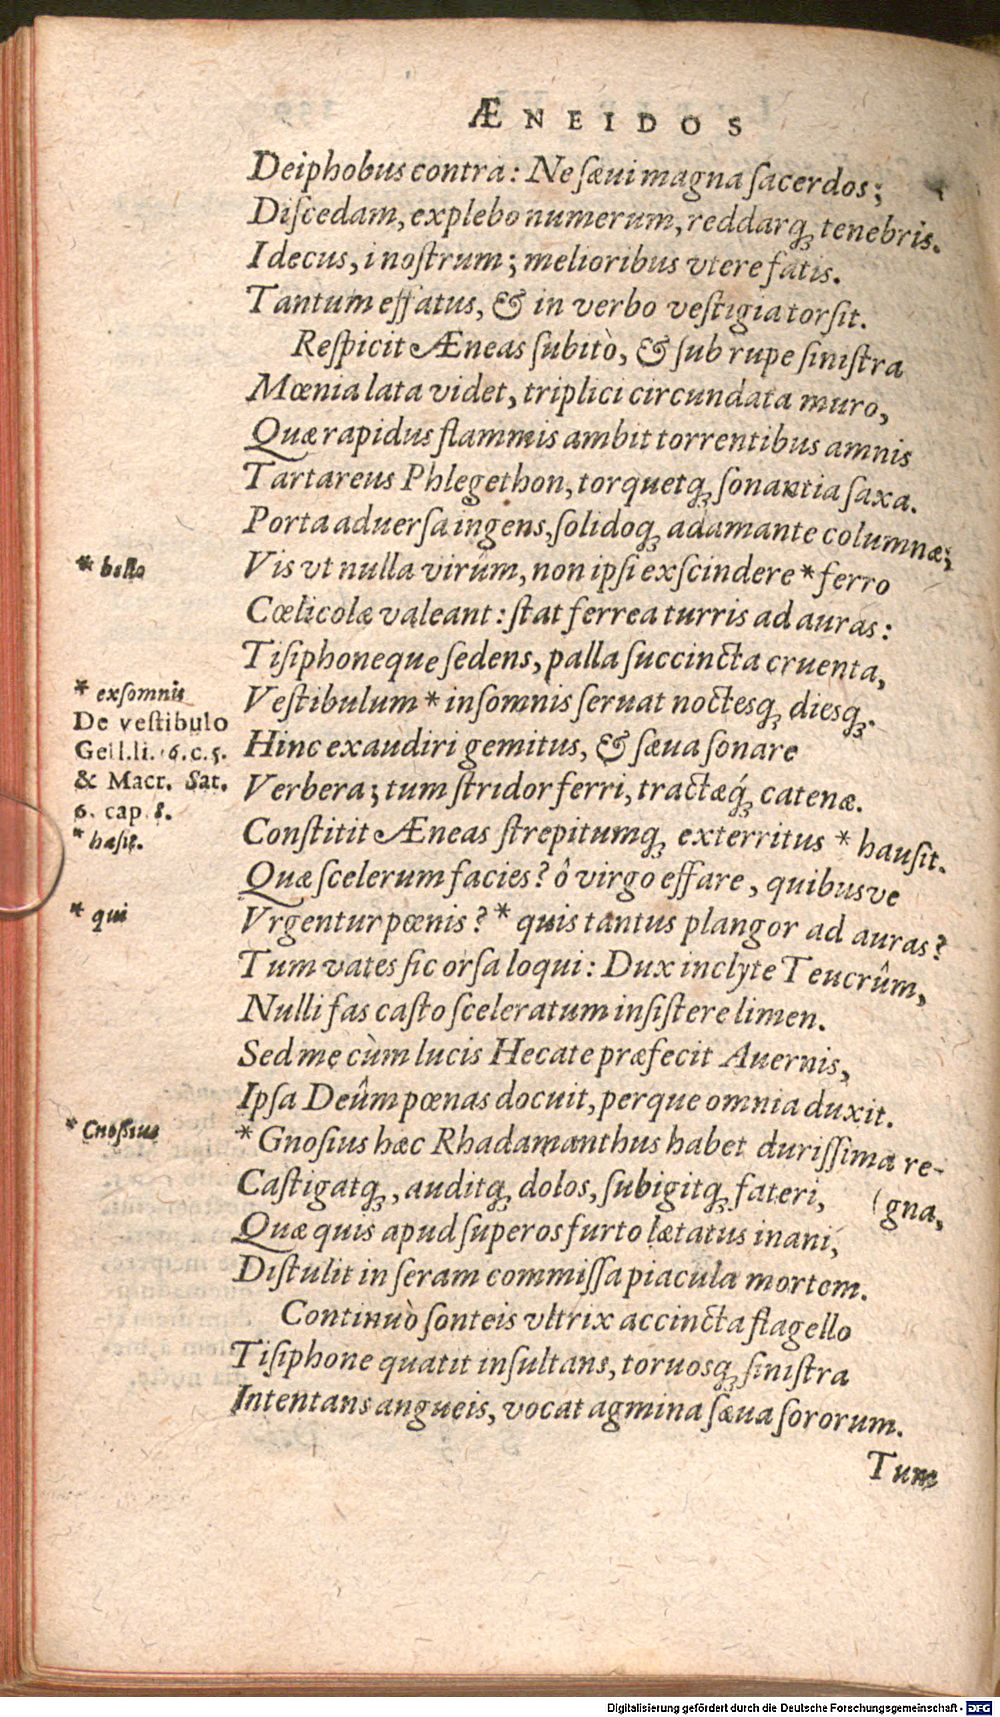 ÆNEIDOS
Deiphobus contra: Ne ſæui magna ſacerdos;
Diſcedam, explebo numerum, reddarq́; tenebris.
I decus, i noſtrum; melioribus vtere fatis.
Tantum effatus, & in verbo veſtigia torſit.
Reſpicit Æneas ſubitò, & ſub rupe ſiniſtra
Mœnia lata videt, triplici circundata muro,
Quæ rapidus flammis ambit torrentibus amnis
Tartareus Phlegethon, torquetq́; ſonantia ſaxa.
Porta aduerſa ingens, ſolidoq́; adamante columnæ;
* bello
Vis vt nulla virûm, non ipſi exſcindere * ferro
Cœlicolæ valeant: ſtat ferrea turris ad auras:
Tiſiphoneque ſedens, palla ſuccincta cruenta,
* exſomnis
Veſtibulum * inſomnis ſeruat noctesq́; diesq́;.
De veſtibulo
Gell.li. 16.c.5.
Hinc exaudiri gemitus, & ſæua ſonare
& Macr. Sat.
Verbera; tum ſtridor ferri, tractæq́; catenæ.
6. cap 8.
* hæſit.
Conſtitit Æneas ſtrepitumq́; exterritus * hauſit.
Quæ ſcelerum facies? ô virgo effare, quibusve
* qui
Vrgentur pœnis? * quis tantus plangor ad auras?
Tum vates ſic orſa loqui: Dux inclyte Teucrûm,
Nulli fas caſto ſceleratum inſiſtere limen.
Sed me cùm lucis Hecate præfecit Auernis,
Ipſa Deûm pœnas docuit, perque omnia duxit.
* Cnoſſius
* Gnoſius hæc Rhadamanthus habet duriſſima re-
Caſtigatq́;, auditq́; dolos, ſubigitq́; fateri, (gna,
Quæ quis apud ſuperos furto lætatus inani,
Diſtulit in ſeram commiſſa piacula mortem.
Continuò ſonteis vltrix accincta flagello
Tiſiphone quatit inſultans, toruosq́; ſiniſtra
Intentans angueis, vocat agmina ſæua ſororum.
Tum
Digitalisierung gefördert durch die Deutsche Forschungsgemeinschaft - DFG